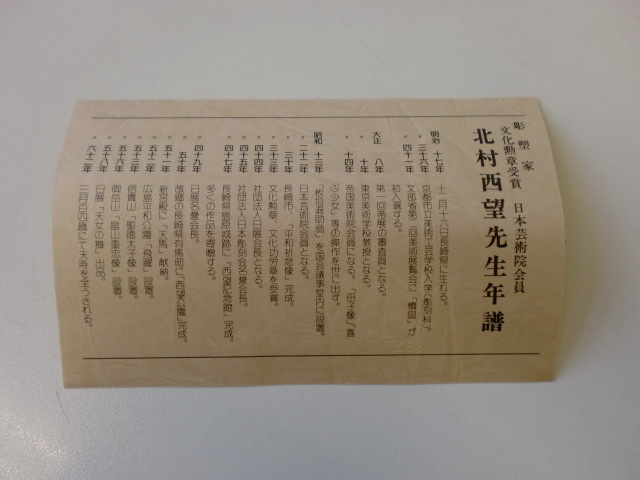 彫塑家
文化勲章受賞　日本芸術院会員
北村西望先生年譜
明治 十七年 十二月十六日長崎県に生れる。
〃 三十六年 京都市立美術工芸学校入学(彫刻科)。
〃 四十一年 文部省第二回美術展覧会に「憤図」が
初入選する。
大正 八年 第一回帝展の審査員となる。
〃 十年 東京美術学校教授となる。
〃 十四年 帝国美術院会員になる。「田子像」「喜
ぶ少女」等の傑作を世に出す。
昭和 十三年 「板垣退助翁」を国会議事堂内に設置。
〃 二十二年 日本芸術院会員となる。
〃 三十年 長崎市、「平和祈念像」完成。
〃 三十三年 文化勲章、文化功労章を受賞。
〃 四十四年 社団法人日展会長となる。
〃 四十五年 社団法人日本彫刻会名誉会長。
〃 四十七年 長崎県島原城跡に「西望記念館」完成。
多くの作品を寄贈する。
〃 四十九年 日展名誉会長。
〃 五十年 故郷の長崎県有馬町に「西望公園」完成。
〃 五十一年 新宮殿に「天馬」献納。
〃 五十二年 広島平和公園「飛躍」設置。
〃 五十三年 信貴山「聖徳太子像」設置。
〃 五十五年 御岳山「畠山重忠像」設置。
〃 五十八年 日展「天女の舞」出品。
〃 六十二年 三月百四歳にて天寿を全うされる。